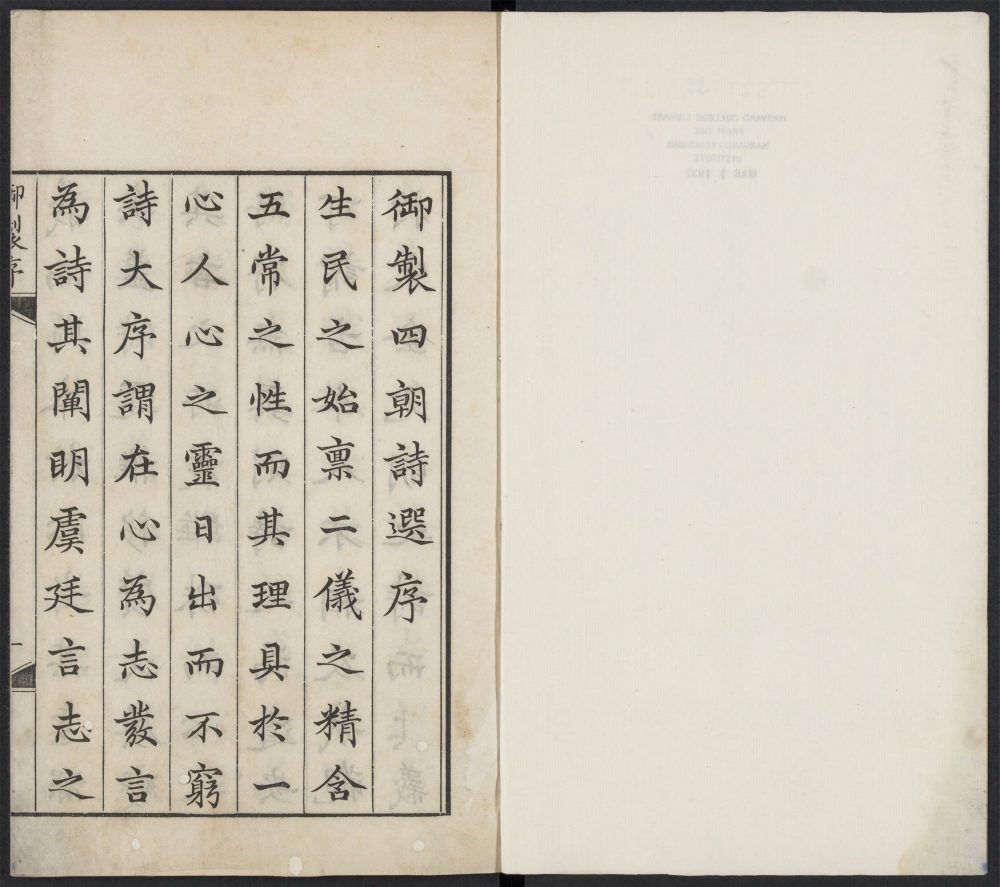 御製四朝詩選序
生民之始禀二儀之精含
五常之性而其理具於一
心人心之靈日出而不窮
詩大序謂在心為志發言
為詩其闡明虞廷言志之
御製序
一
HARVARD COLLEGE LIBRARY
FROM THE
HARVARD-YENCHING
INSTITUTE
MAR 1 1937